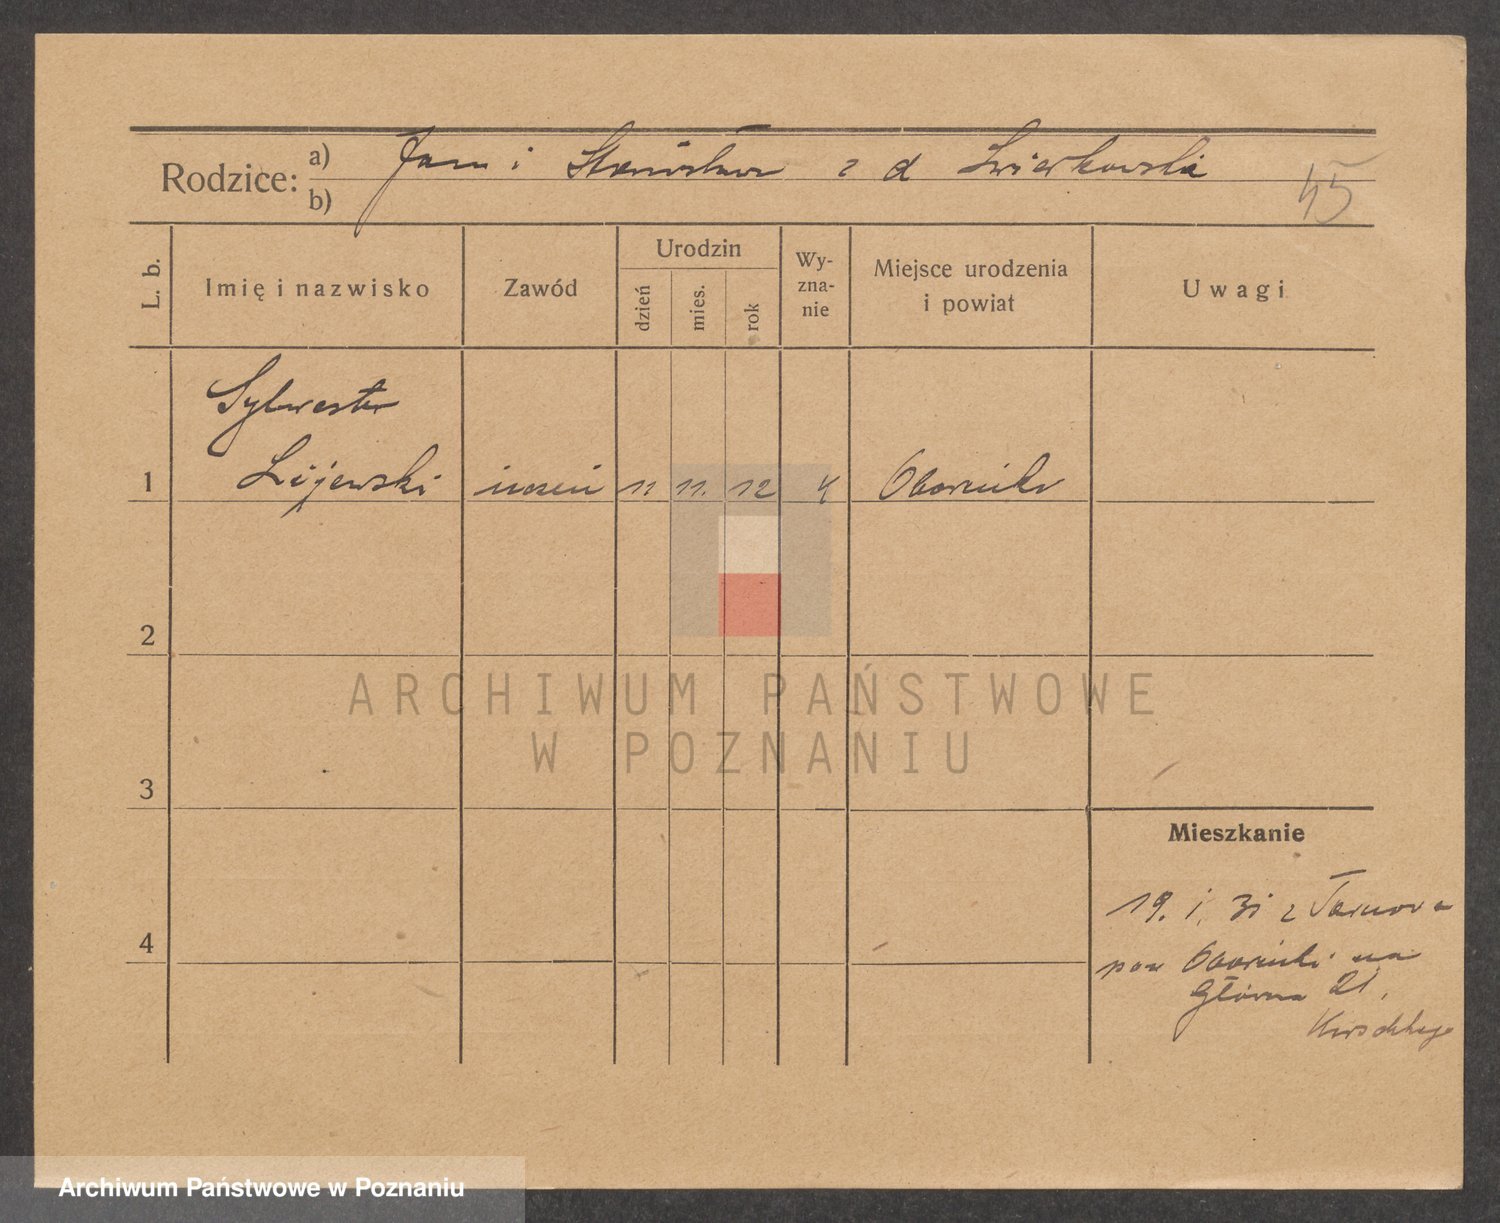 Rodzice: a) Jan i Stanisława z d Świerkowska
b)
45
L. b.
Imię i nazwisko
Zawód
Urodzin
dzień
mies.
rok
Wy-
zna-
nie
Miejsce urodzenia
i powiat
Uwagi
Sylwester
1 Lijewski uczeń 11 11. 12 Oborniki
2
3
4
Mieszkanie
19. i. 31 z Tarnowa
pow Oborniki na
Główna 21,
ARCHIWUM PAŃSTWOWE
W POZNANIU
Archiwum Państwowe w Poznaniu